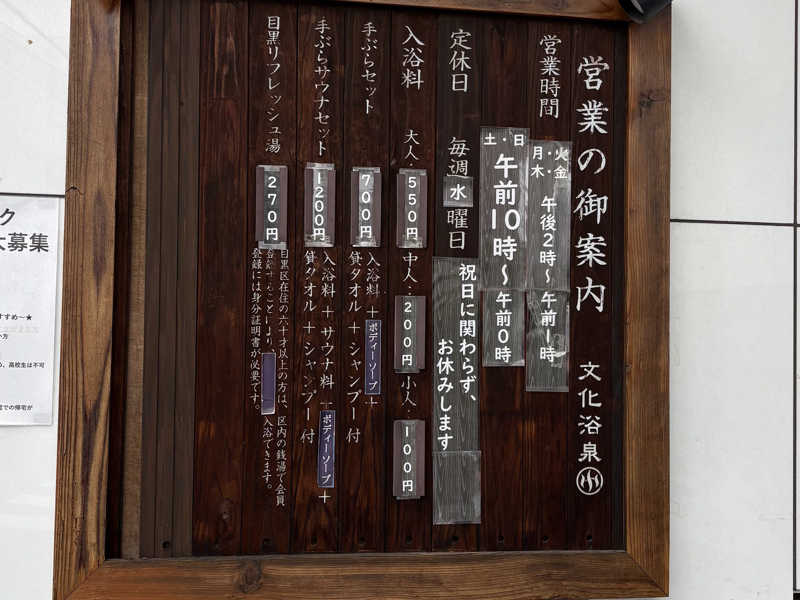 営業の御案内 文化浴泉
営業時間
月・火・
木・金
午後2時〜午前1時
土・日
午前10時〜午前0時
定休日 毎週水曜日
祝日に関わらず、
お休みします
入浴料 大人:550円 中人:200円 小人:100円
手ぶらセット 700円 入浴料+ボディーソープ+
貸タオル+シャンプー付
手ぶらサウナセット 1200円 入浴料+サウナ料+ボディーソープ+
貸タオル+シャンプー付
目黒リフレッシュ湯 270円
目黒区在住の六十才以上の方は、区内の銭湯で会員
登録することにより、入浴できます。
登録には身分証明書が必要です。
ク
大募集
すすめ〜★
高校生は不可
での帰宅が